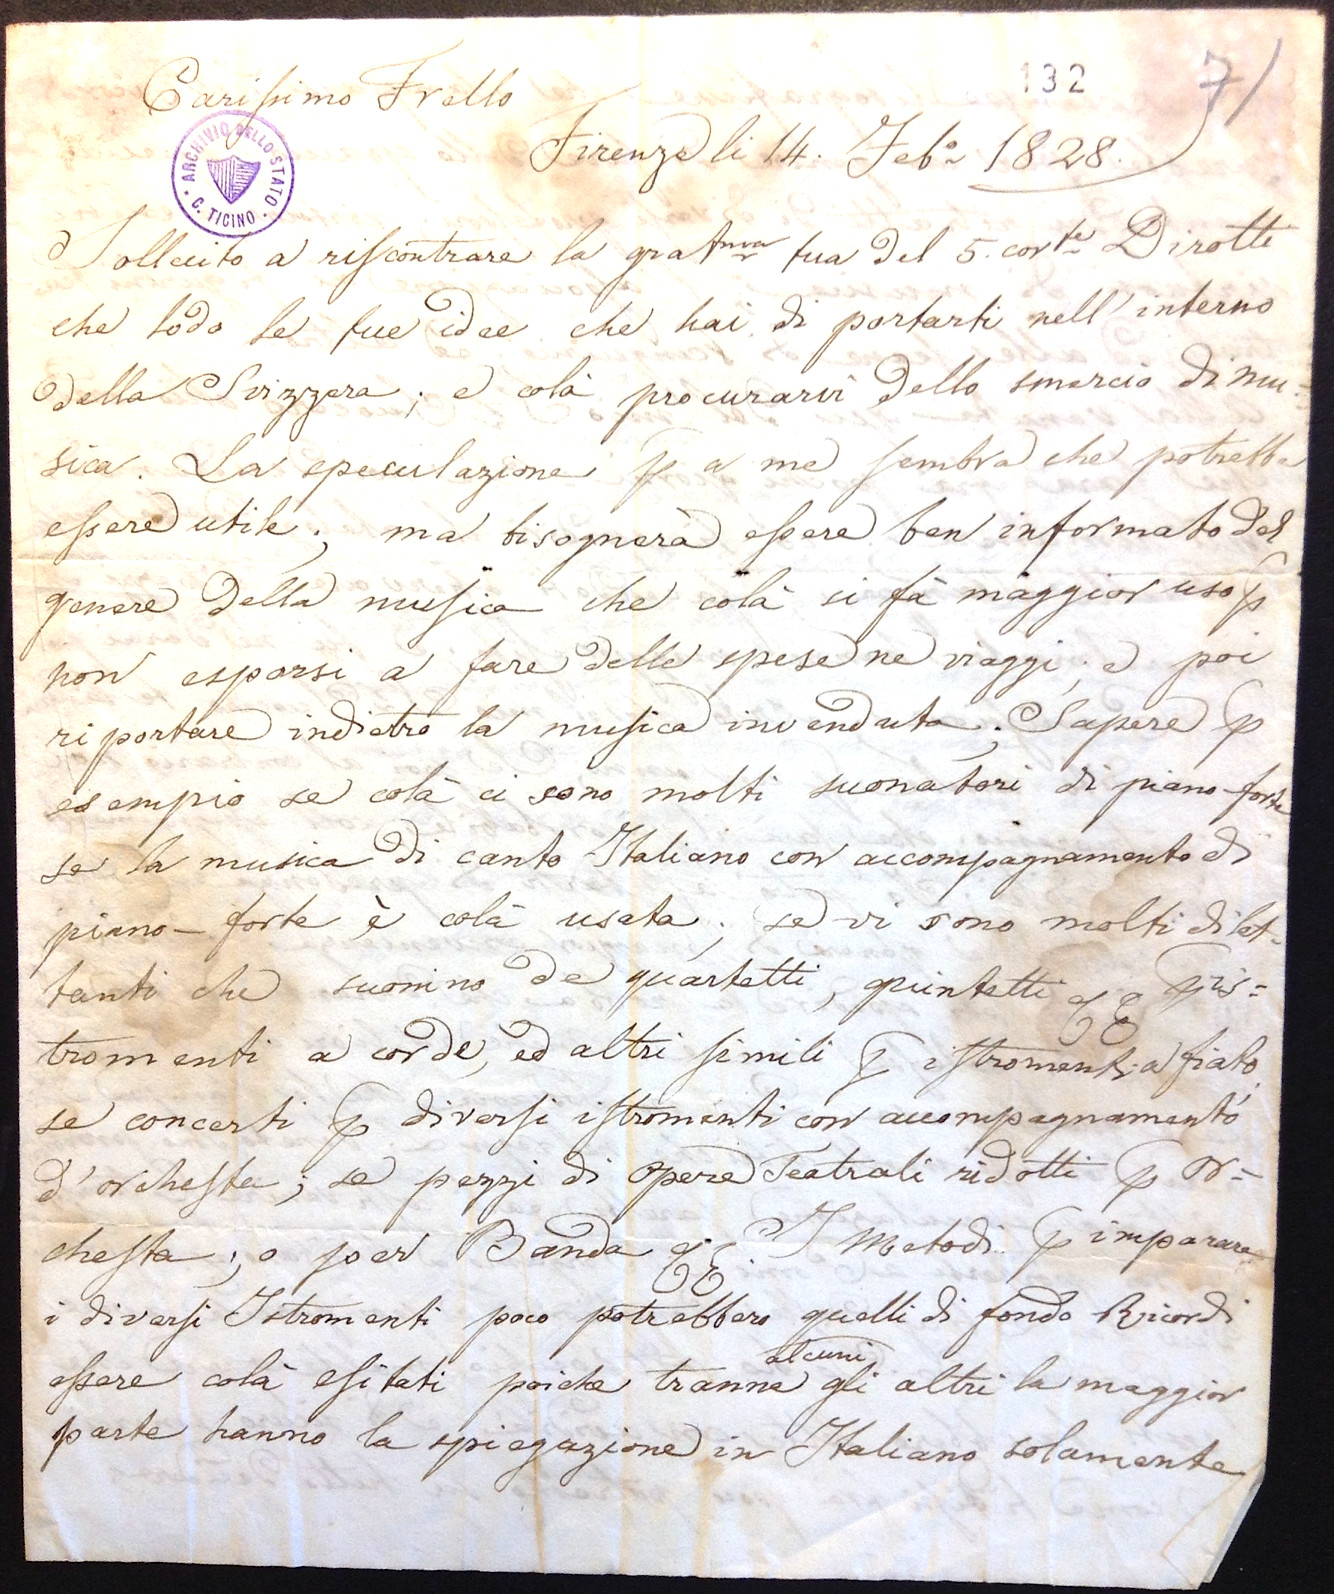 132
7/
Carissimo Frello
ARCHIVIO DELLO STATO
C. TICINO
Firenze li 14. Feb.o 1828.
Sollecito a riscontrare la grat.ma tua del 5. cor.te Dirotti
che lodo le tue idee che hai di portarti nell' interno
della Svizzera; e colà procurarvi dello smercio di mu-
sica. La speculazione p a me sembra che potrebbe
essere utile; ma bisognerà essere ben informato del
genere della musica che colà si fà maggior uso p
non esporsi a fare delle spese ne viaggi, e poi
riportare indietro la musica invenduta; Sapere p
esempio se colà ci sono molti suonatori di piano-forte
se la musica di canto Italiano con accompagnamento di
piano-forte è colà usata; se vi sono molti dilet-
tanti che suonino de quartetti, quintetti p is-
tromenti a corde, ed altri simili p istromenti a fiato,
se concerti p diversi istromenti con accompagnamento
d'orchesta; se pezzi di opere Teatrali ridotti p or-
chesta; o per Banda I Metodi p imparare
i diversi Istromenti poco potrebbero quelli di fondo Ricordi
essere colà esitati poiche tranne alcuni gli altri la maggior
parte hanno la spiegazione in Italiano solamente